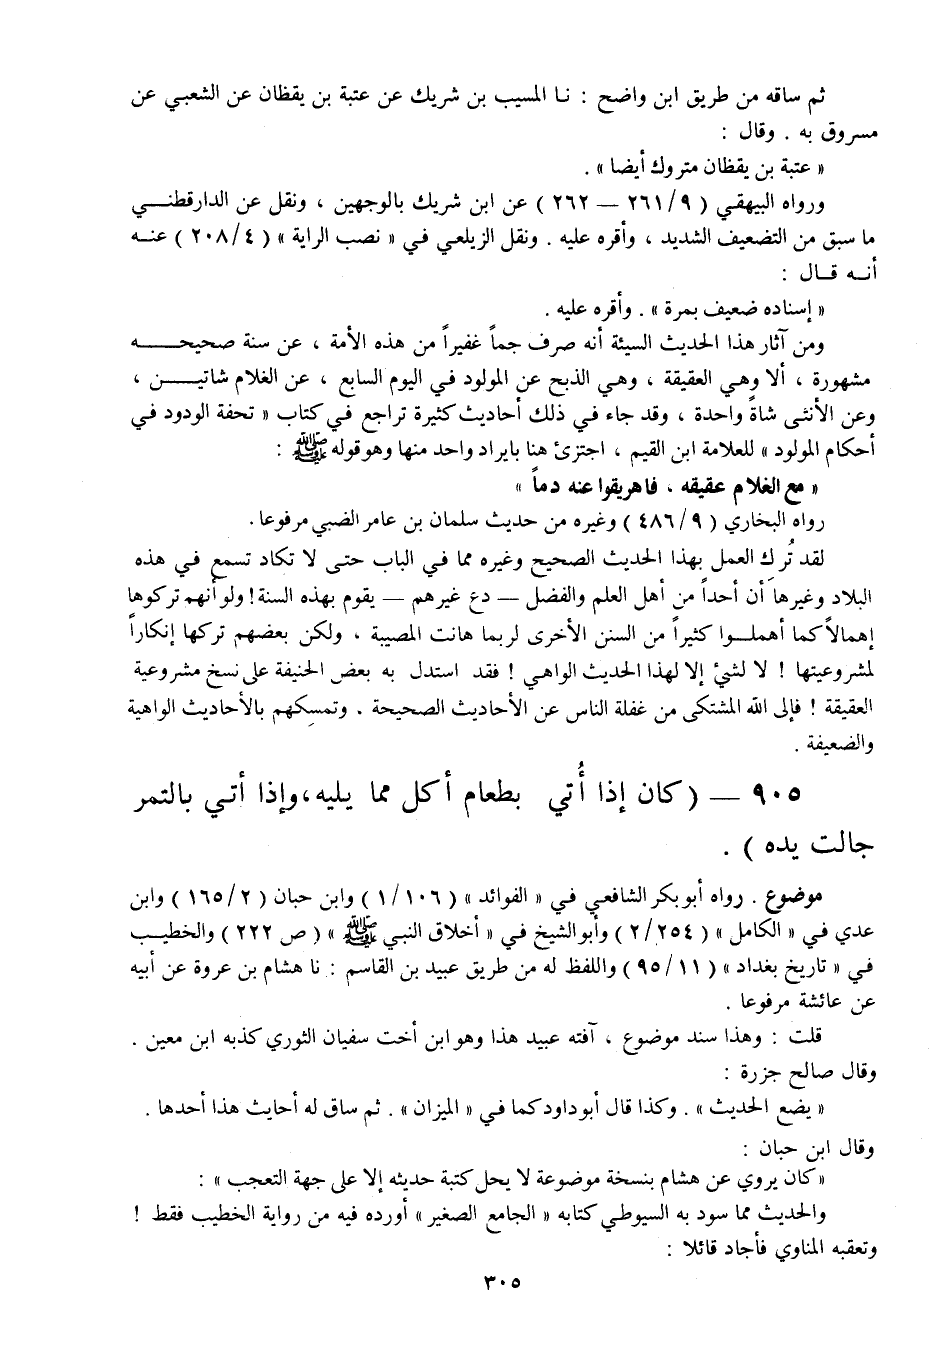 ثم ساقه من طريق ابن واضح : نا المسيب بن شريك عن عتبة بن يقظان عن الشعبي عن
مسروق به . وقال :
« عتبة بن يقظان متروك أيضا » .
ورواه البيهقي ( ٩/ ٢٦١ — ٢٦٢ ) عن ابن شريك بالوجهين ، ونقل عن الدارقطنـــي
ما سبق من التضعيف الشديد ، وأقره عليه . ونقل الزيلعي في « نصب الراية » ( ٤/ ٢٠٨ ) عنـــه
أنـــه قـــال :
« إسناده ضعيف بمرة » . وأقره عليه .
ومن آثار هذا الحديث السيئة أنه صرف جماً غفيراً من هذه الأمة ، عن سنة صحيحـــــه
مشهورة ، ألا وهي العقيقة ، وهي الذبح عن المولود في اليوم السابع ، عن الغلام شاتيـــــن ،
وعن الأنثى شاةً واحدة ، وقد جاء في ذلك أحاديث كثيرة تراجع في كتاب « تحفة الودود في
أحكام المولود » للعلامة ابن القيم ، اجتزئ هنا بايراد واحد منها وهو قوله ﷺ :
« مع الغلام عقيقه ، فاهريقوا عنه دماً »
رواه البخاري ( ٩/ ٤٨٦ ) وغيره من حديث سلمان بن عامر الضبي مرفوعا .
لقد تُرِك العمل بهذا الحديث الصحيح وغيره مما في الباب حتى لا تكاد تسمع في هذه
البلاد وغيرها أن أحداً من أهل العلم والفضل — دع غيرهم — يقوم بهذه السنة! ولو أنهم تركوها
إهمالاً كما أهملـــوا كثيراً من السنن الأخرى لربما هانت المصيبة ، ولكن بعضهم تركها إنكاراً
لمشروعيتها ! لا لشئ إلا لهذا الحديث الواهي ! فقد استدل به بعض الحنيفة على نسخ مشروعية
العقيقة ! فإلى الله المشتكى من غفلة الناس عن الأحاديث الصحيحة . وتمسكهم بالأحاديث الواهية
والضعيفة .
٩٠٥ — ( كان إذا أُتي بطعام أكل مما يليه ، وإذا أتي بالتمر
جالت يده ) .
موضوع . رواه أبو بكر الشافعي في « الفوائد » ( ١٠٦/ ١ ) وابن حبان ( ٢/ ١٦٥ ) وابن
عدي في « الكامل » ( ٢٥٤/ ٢ ) وأبو الشيخ في « أخلاق النبي ﷺ » ( ص ٢٢٢ ) والخطيـــب
في « تاريخ بغداد » ( ١١/ ٩٥ ) واللفظ له من طريق عبيد بن القاسم : نا هشام بن عروة عن أبيه
عن عائشة مرفوعا .
قلت : وهذا سند موضوع ، آفته عبيد هذا وهو ابن أخت سفيان الثوري كذبه ابن معين .
وقال صالح جزرة :
« يضع الحديث » . وكذا قال أبو داود كما في « الميزان » . ثم ساق له أحايث هذا أحدها .
وقال ابن حبان :
« كان يروي عن هشام بنسخة موضوعة لا يحل كتبة حديثه إلا على جهة التعجب » :
والحديث مما سود به السيوطي كتابه « الجامع الصغير » أورده فيه من رواية الخطيب فقط !
وتعقبه المناوي فأجاد قائلا :
٣٠٥